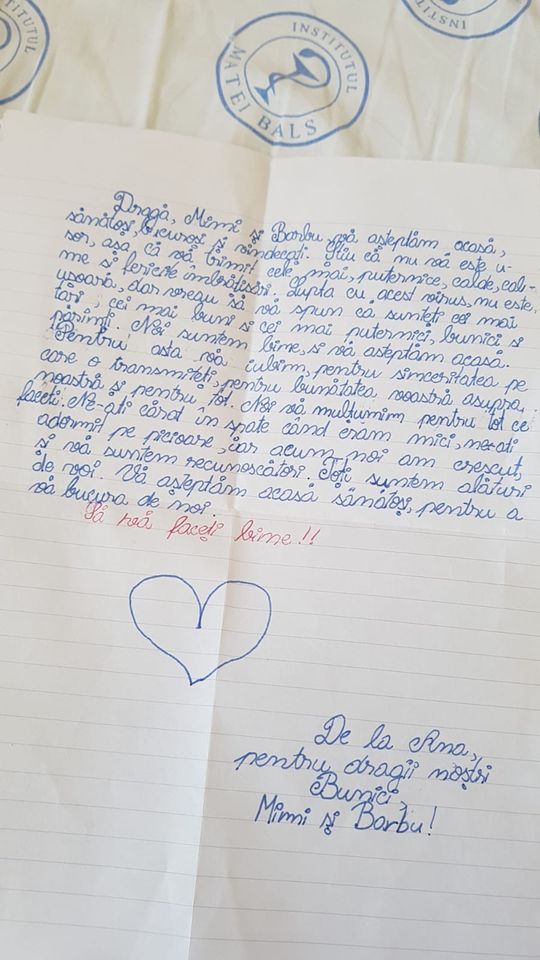 INSTITUTUL
MATEI BALS
INSTIT
TITUTUL
Dragă, Mimi și Barbu vă așteptăm acasă,
sănătoși, bucuroși și vindecați. Știu că nu vă este u-
șor, așa că vă trimit cele mai, puternice, calde, cali-
me și fericite îmbrățișări. Lupta cu acest virus, nu este
ușoară, dar vreau să vă spun că sunteți cei mai
tări, cei mai buni și cei mai puternici, bunici și
părinți. Noi suntem bine, și vă așteptăm acasă.
Pentru asta vă iubim, pentru sinceritatea pe
care o transmiteți, pentru bunătatea voastră asupra
noastră și pentru tot. Noi vă mulțumim pentru tot ce
faceți. Ne-ați cărat în spate când eram mici, ne-ați
adormit pe picioare, iar acum noi am crescut,
și vă suntem recunoscători. Toți suntem alături
de voi. Vă așteptăm acasă sănătoși, pentru a
vă bucura de noi.
Să vă faceți bine!!
De la Ana,
pentru dragii noștri
Bunici,
Mimi și Barbu!